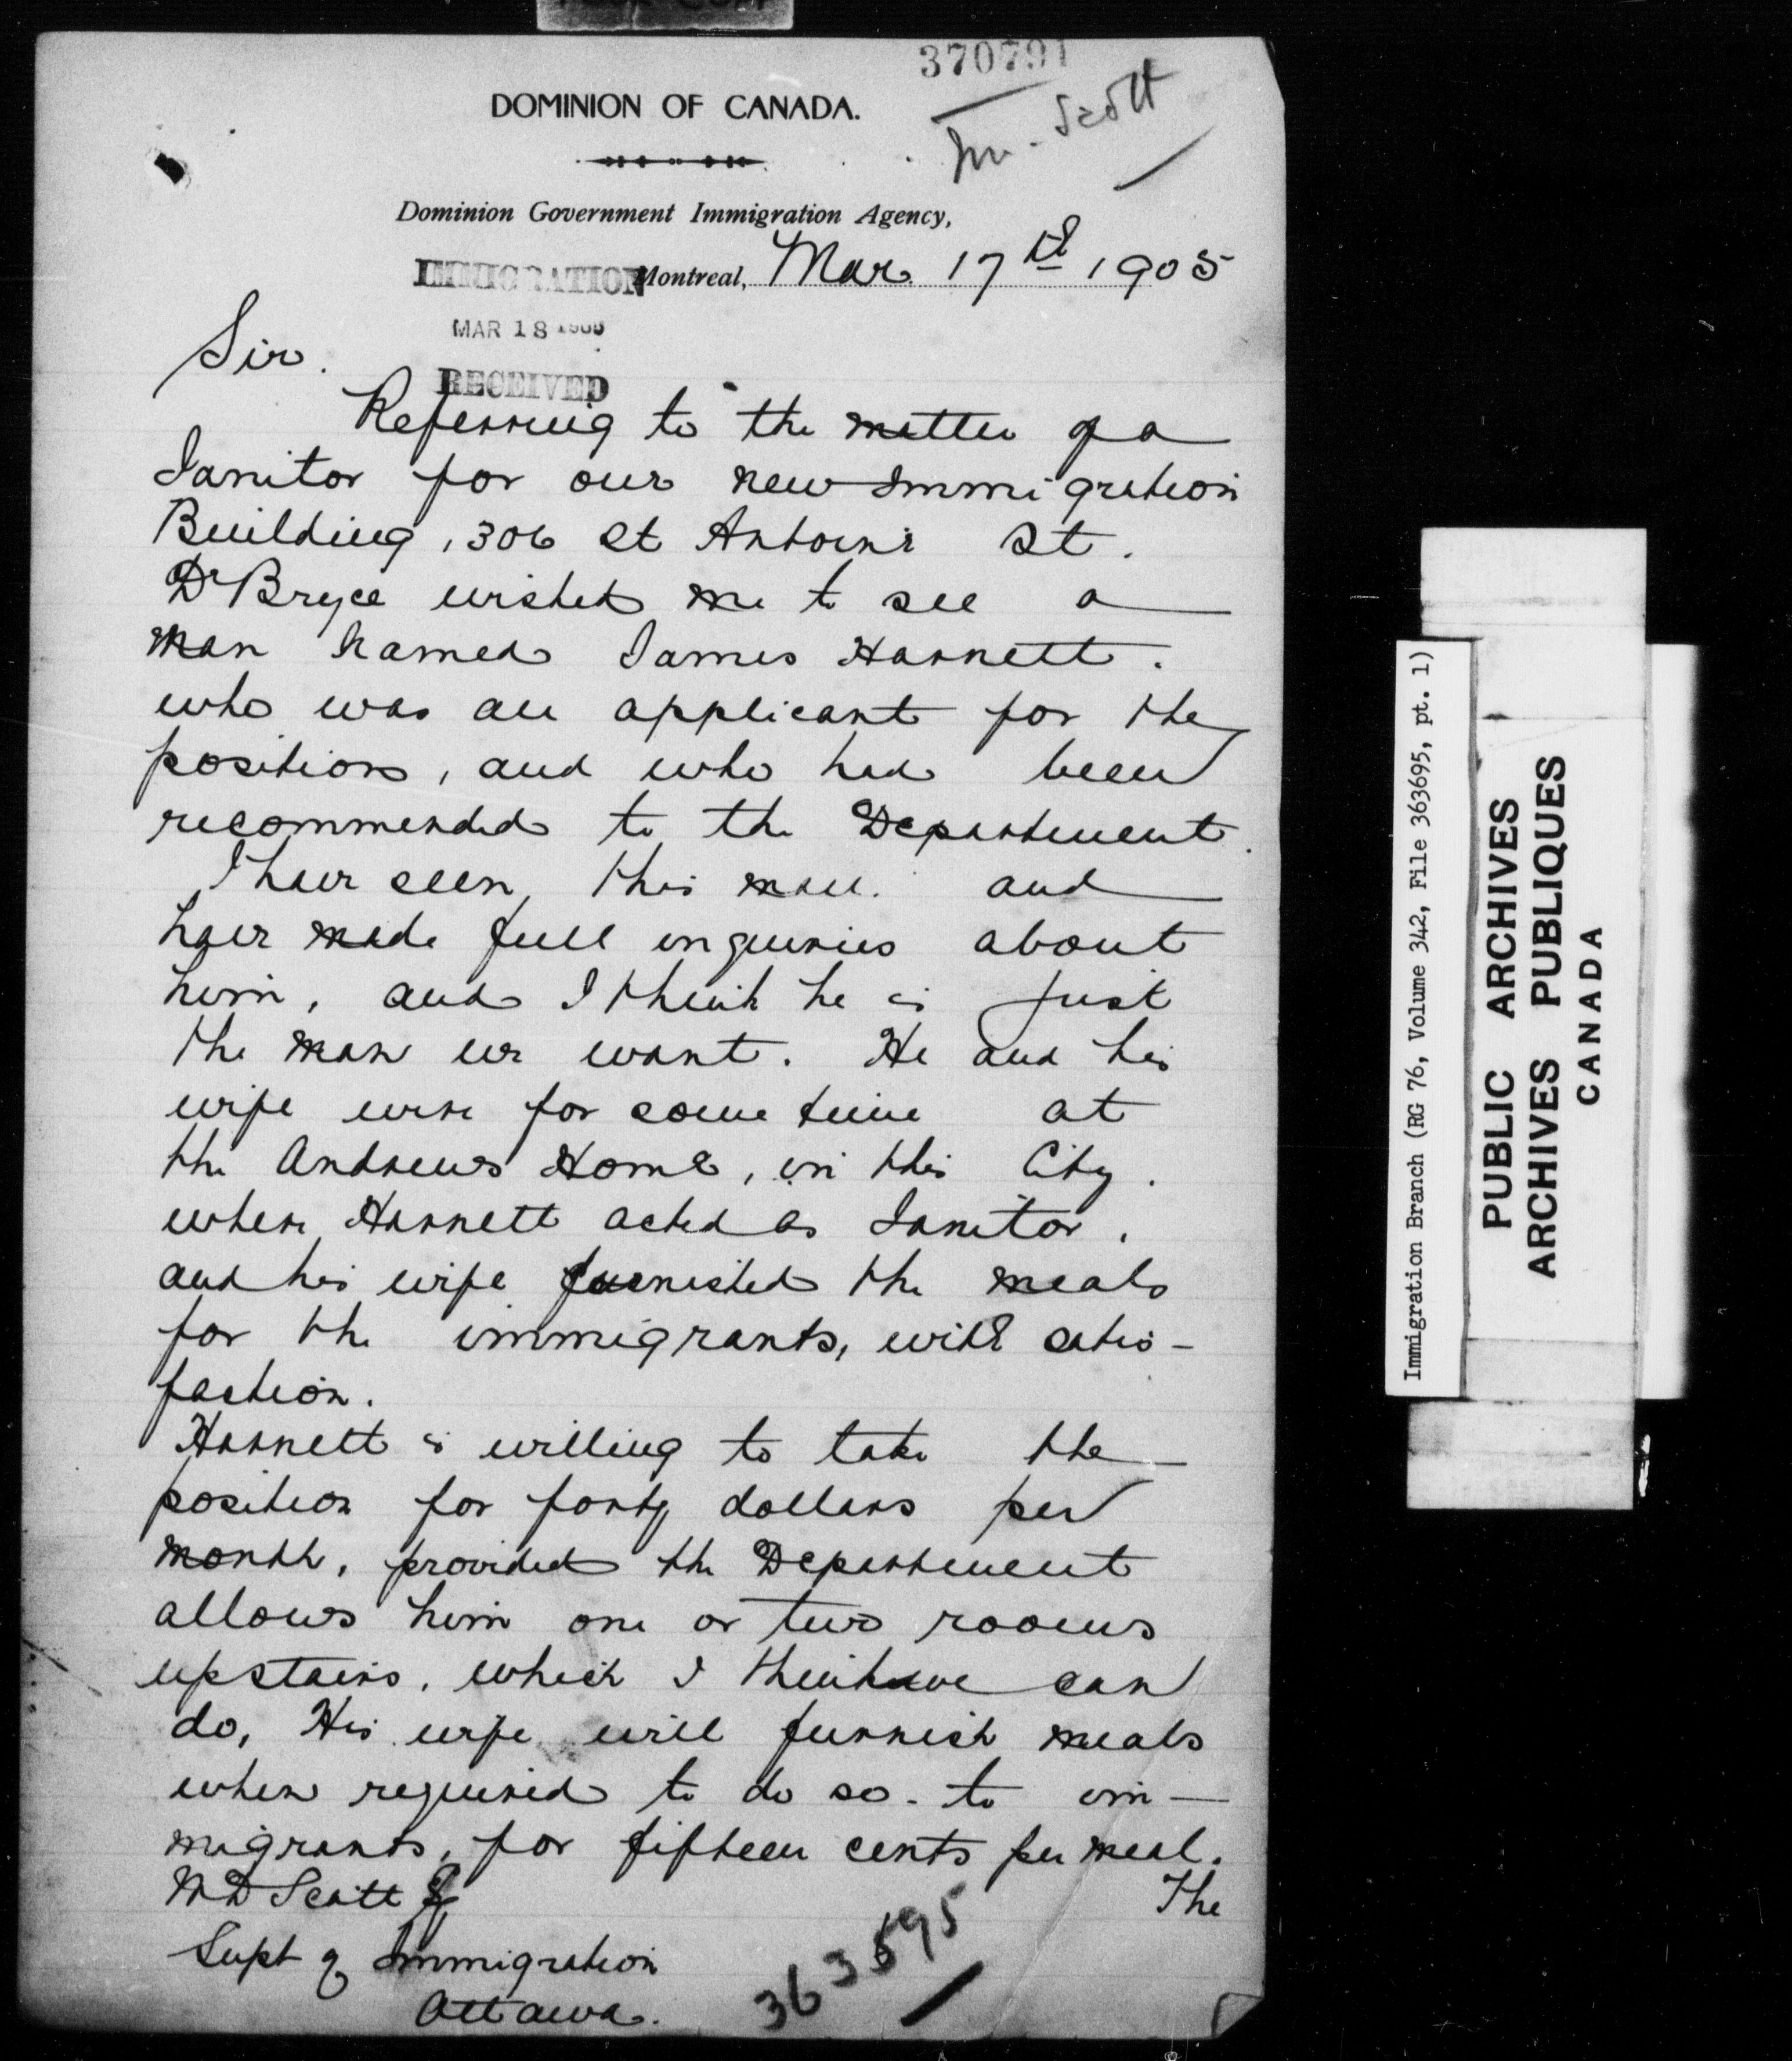 370791
Mr. Scott
DOMINION OF CANADA.
Dominion Government Immigration Agency,
IMMIGRATION
Montreal, Mar. 17th 1905
MAR 18 1905
RECEIVED
Sir.
Referring to the matter of a
Janitor for our new Immigration
Building, 306 St Antoine St.
Dr Bryce wished me to see a
man named James Harnett.
who was an applicant for the
position, and who had been
recommended to the Department.
I have seen, this man. and
have made full inquiries about
him, and I think he is just
the man we want. He and his
wife were for some time at
the Andrews Home, in this City.
where Harnett acted as Janitor,
and his wife furnished the meals
for the immigrants, with satis-
faction.
Harnett is willing to take the
position for forty dollars per
month, provided the Department
allows him one or two rooms
upstairs, which I think we can
do, His wife will furnish meals
when required to do so - to im-
migrants, for fifteen cents per meal.
The
W D Scott Esq
Supt of Immigration
Ottawa.
363695
Immigration Branch (RG 76, Volume 342, File 363695, pt. 1)
PUBLIC ARCHIVES
ARCHIVES PUBLIQUES
CANADA